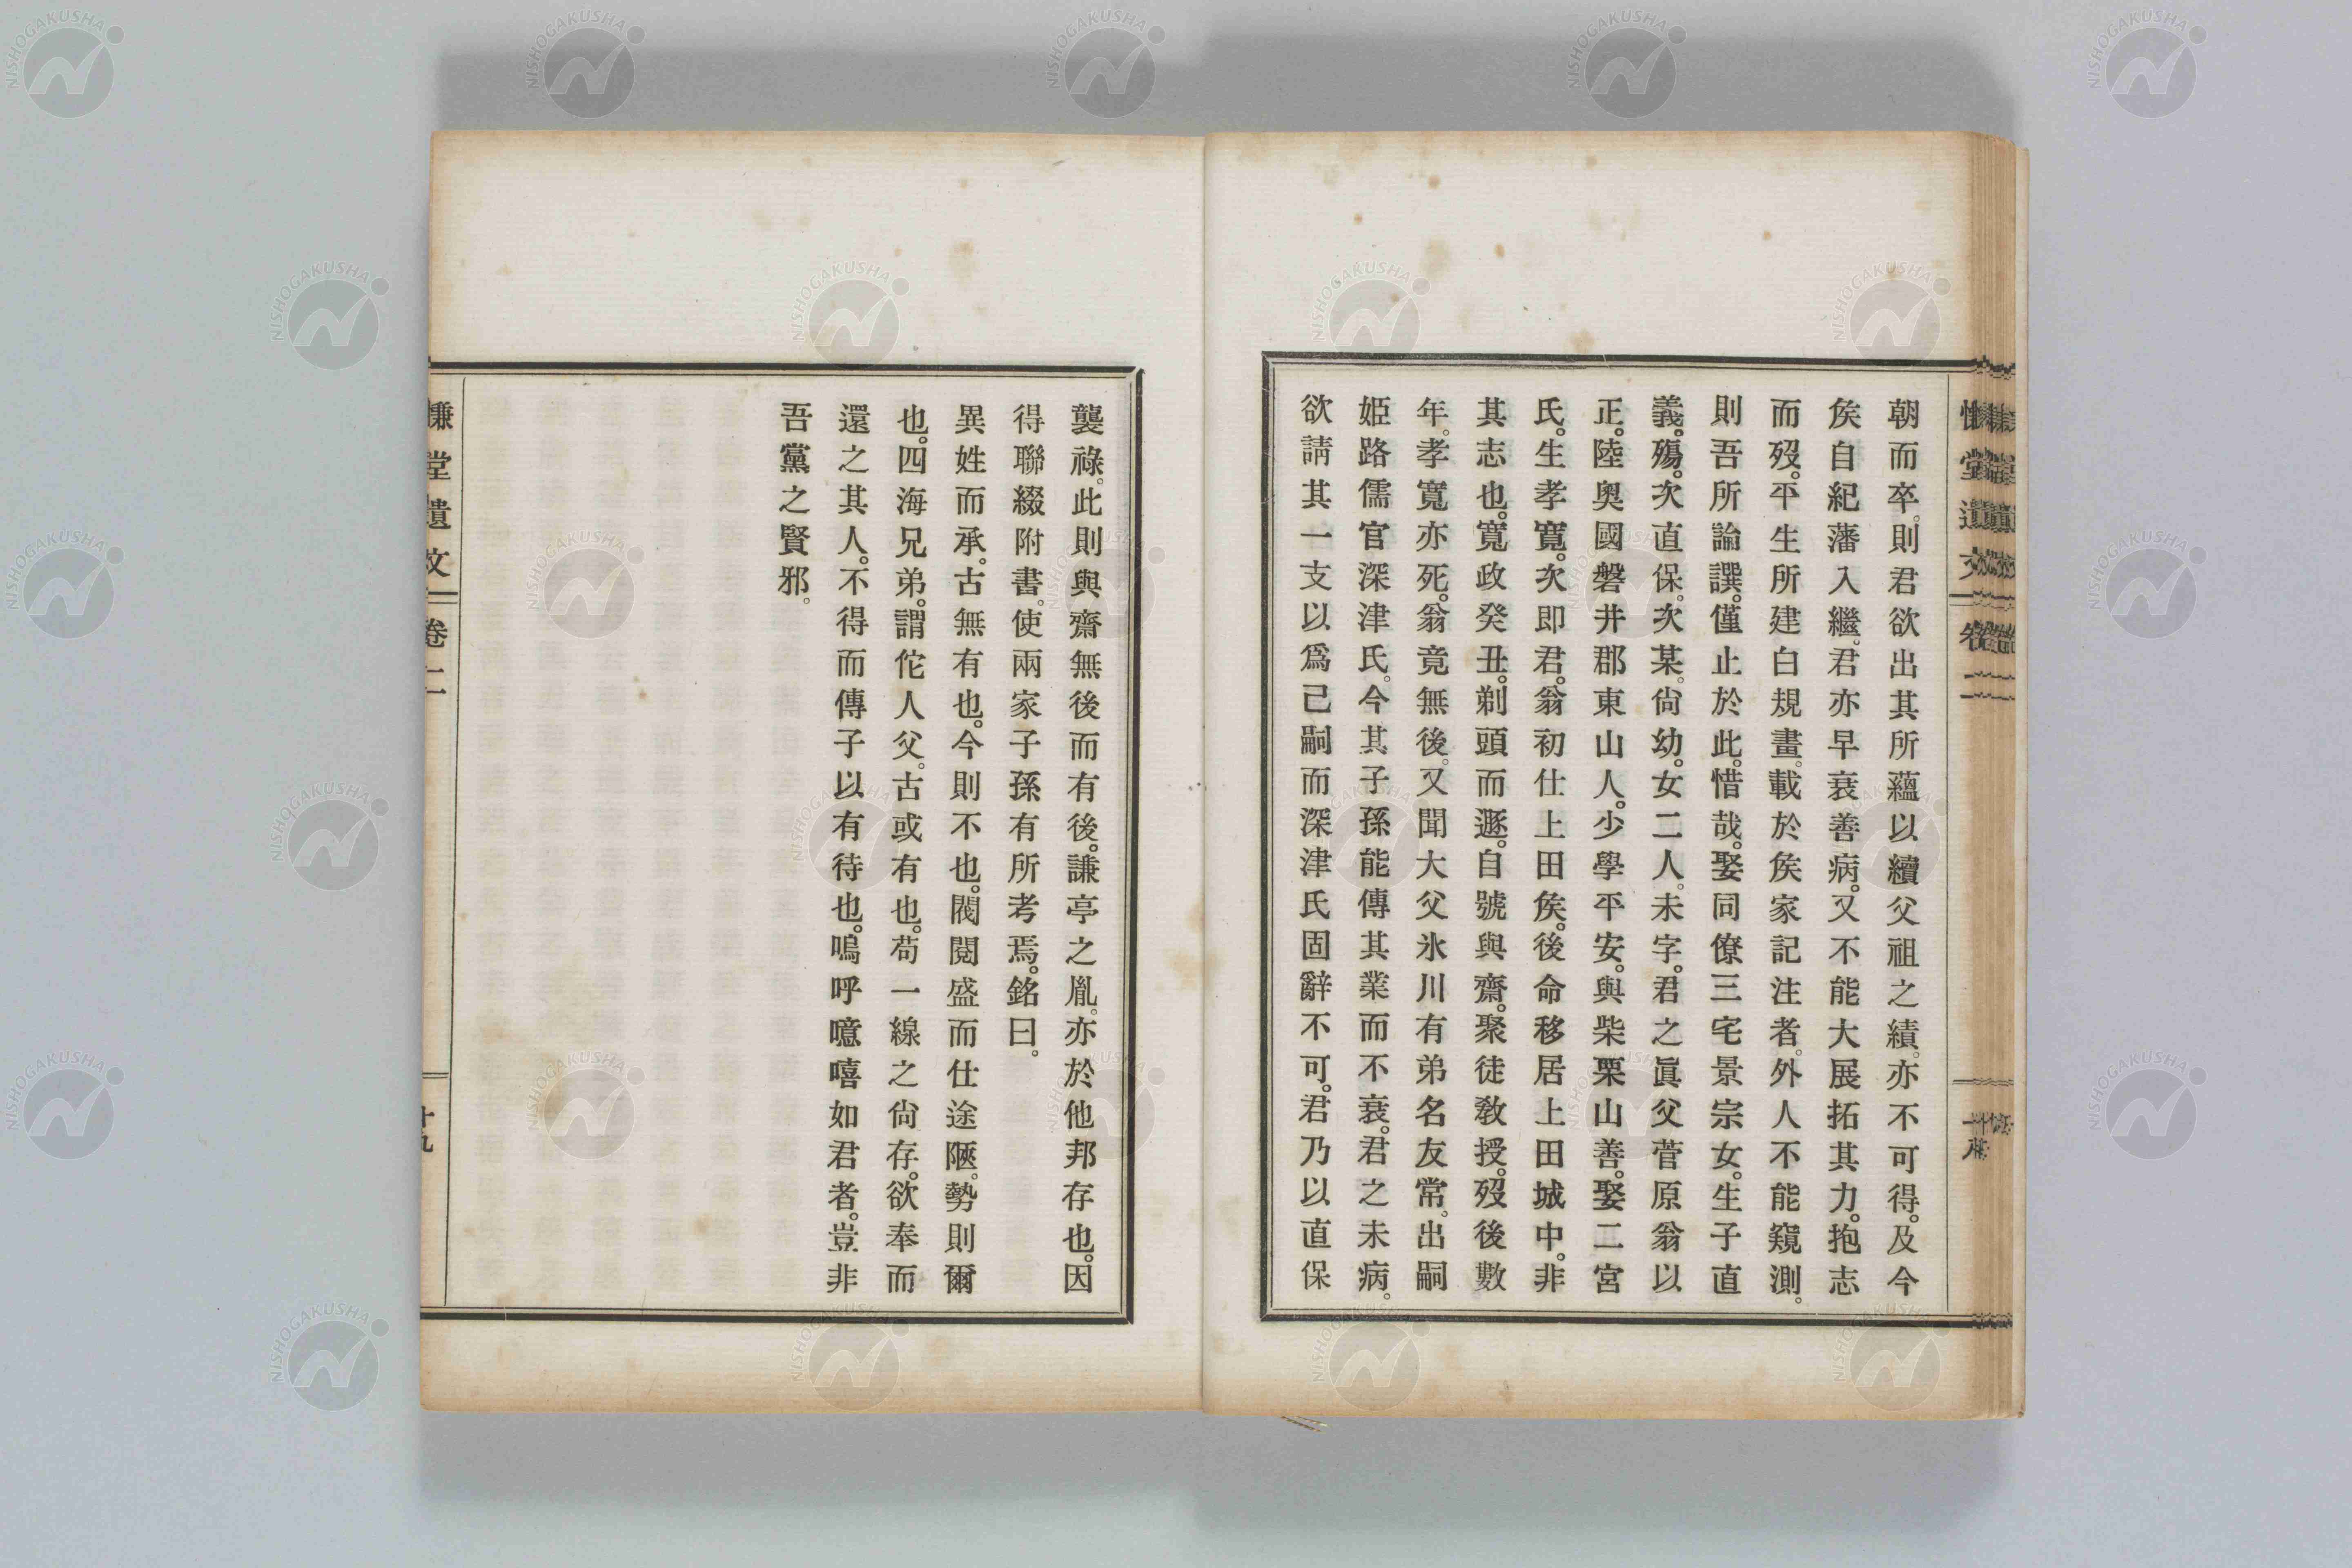 朝而卒。則君欲出其所蘊以續父祖之績。亦不可得。及今
矦自紀藩入繼。君亦早衰善病。又不能大展拓其力。抱志
而歿。平生所建白規畫。載於矦家記注者。外人不能窺測。
則吾所論譔。僅止於此。惜哉。娶同僚三宅景宗女。生子直
義。殤。次直保。次某。尙幼。女二人。未字。君之眞父菅原翁以
正。陸奧國磐井郡東山人。少學平安。與柴栗山善。娶二宮
氏。生孝寬。次即君。翁初仕上田矦。後命移居上田城中。非
其志也。寬政癸丑。剃頭而遯。自號與齋。聚徒敎授。歿後數
年。孝寬亦死。翁竟無後。又聞大父氷川有弟名友常。出嗣
姫路儒官深津氏。今其子孫能傳其業而不衰。君之未病。
欲請其一支以爲己嗣而深津氏固辭不可。君乃以直保
襲祿。此則與齋無後而有後。謙亭之胤。亦於他邦存也。因
得聯綴附書。使兩家子孫有所考焉。銘曰。
異姓而承。古無有也。今則不也。閥閱盛而仕途陋。勢則爾
也。四海兄弟。謂佗人父。古或有也。苟一線之尙存。欲奉而
還之其人。不得而傳子以有待也。嗚呼噫嘻如君者。豈非
吾黨之賢邪。
慊堂遺文 卷二
十九
NISHOGAKUSHA